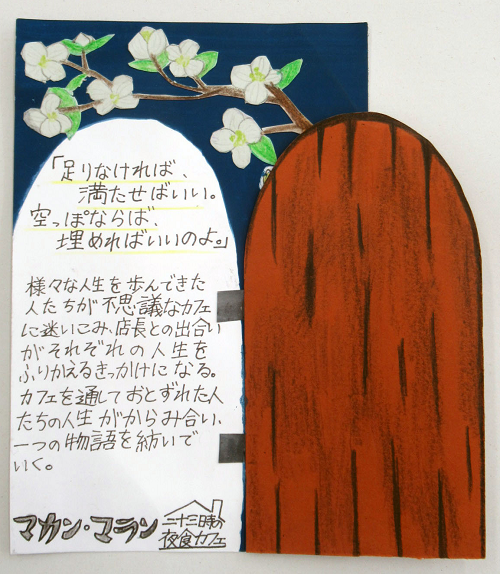 「足りなければ、
満たせばいい。
空っぽならば、
埋めればいいのよ。」
様々な人生を歩んできた
人たちが不思議なカフェ
に迷いこみ、店長との出合い
がそれぞれの人生を
ふりかえるきっかけになる。
カフェを通しておとずれた人
たちの人生がからみ合い、
一つの物語を紡いで
いく。
マカン・マラン
二十三時の
夜食カフェ